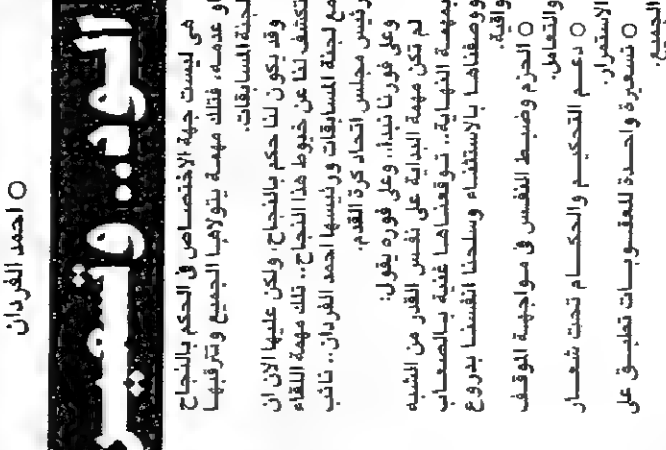 ○ احمد الفردان
هى ليست جهة الاختصاص في الحكم بالنجاح
او عدمه، فتلك مهمة يتولاها الجميع وتترقبها
لجنة المسابقات.
وقد يكون لنا حكم بالنجاح، ولكن عليها الان ان
تكشف لنا عن خيوط هذا النجاح.. تلك مهمة اللقاء
مع لجنة المسابقات ورئيسها احمد الفردان.. نائب
رئيس مجلس اتحاد كرة القدم.
وعلى فورنا نبدأ.. وعلى فوره يقول:
لم تكن مهمة البداية على نفس القدر من الشبه
بمهمة النهاية.. توقعناها غنية بالصعاب
ووصفناها بالاستثناء وسلحنا انفسنا بدروع
واقية.
○ الحزم وضبط النفس في مواجهة الموقف
والتعامل.
○ دعم التحكيم والحكام تحت شعار
الاستمرار.
○ تسعيرة واحدة للعقوبات تطبق على
الجميع.